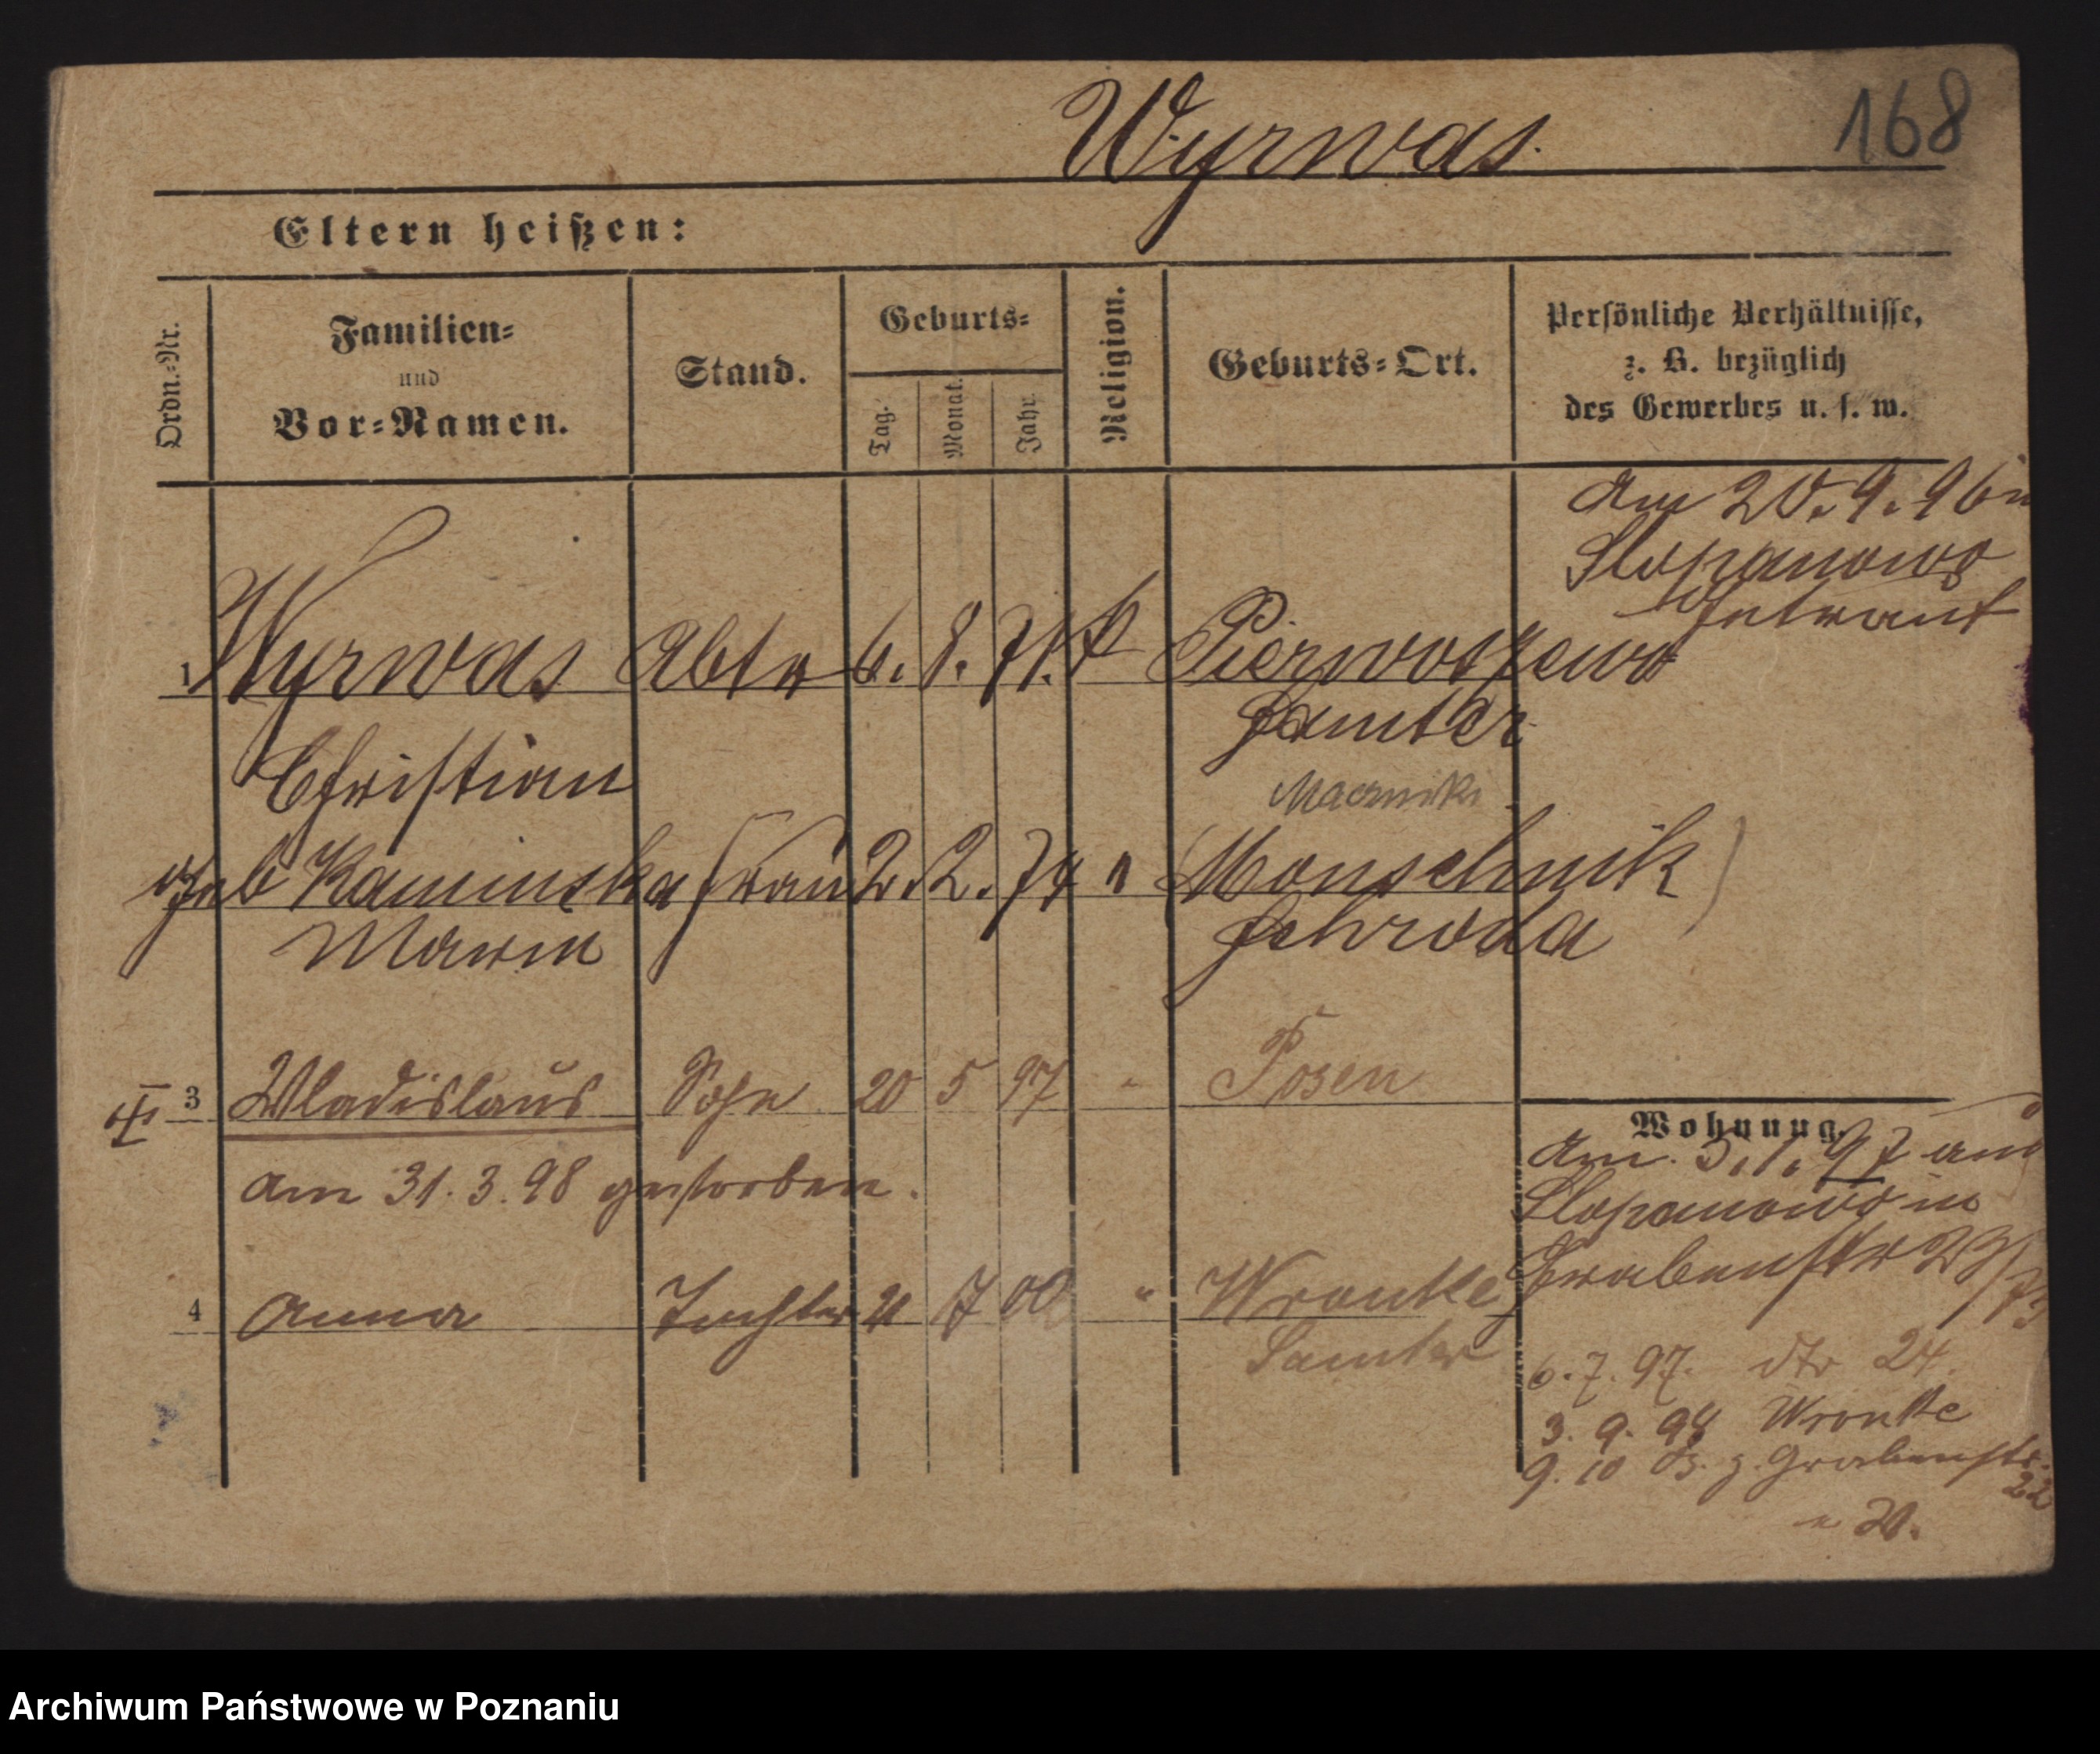 168
Wyrwas.
Eltern heißen:
Ordn.-Nr.
Familien-
und
Vor-Namen.
Stand.
Geburts-
Tag.
Monat.
Jahr.
Religion.
Geburts-Ort.
Persönliche Verhältnisse,
z. B. bezüglich
des Gewerbes u. s. w.
am 20.9.96 in
Slopanowo
getraut
1 Wyrwas Arbtr 6. 8. 71. k Pierwoszewo
Samter
Christian
Macznıki
geb Kaminska Frau 2. 2. 74 " (Monschnik)
Marie Schroda
3 Wladislaus Sohn 20 5 97 " Posen
am 31.3.98 gestorben.
4 Anna Tochter 21 7 00 " Wronke
Samter
Wohnung.
am 5.1.97 aus
Slopanowo in
Grabenstr 23/
6.7.97. dto 24.
3. 9. 98 Wronke
9. 10 z. Grabenstr.
22
" 20.
Archiwum Państwowe w Poznaniu